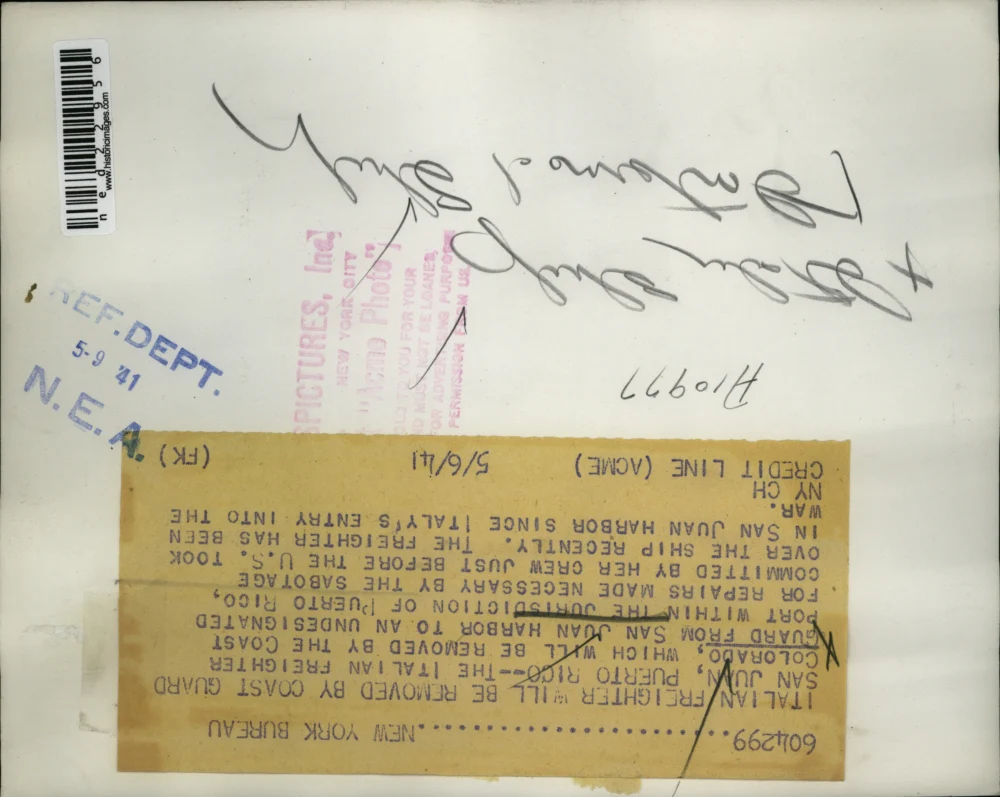 604299..........................NEW YORK BUREAU
ITALIAN FREIGHTER WILL BE REMOVED BY COAST GUARD
SAN JUAN, PUERTO RICO--THE ITALIAN FREIGHTER
COLORADO, WHICH WILL BE REMOVED BY THE COAST
GUARD FROM SAN JUAN HARBOR TO AN UNDESIGNATED
PORT WITHIN THE JURISDICTION OF PUERTO RICO,
FOR REPAIRS MADE NECESSARY BY THE SABOTAGE
COMMITTED BY HER CREW JUST BEFORE THE U.S. TOOK
OVER THE SHIP RECENTLY. THE FREIGHTER HAS BEEN
IN SAN JUAN HARBOR SINCE ITALY'S ENTRY INTO THE
WAR.
NY CH
CREDIT LINE (ACME) 5/6/41 (FK)
A10977
+ Italy Ship
Ship
REF. DEPT.
5-9 '41
N. E. A.
PICTURES, Inc.]
NEW YORK CITY
"Acme Photo"
TO YOU FOR YOUR
MUST NOT BE LOANED,
FOR ADVERTISING PURPOSE
PERMISSION FROM US
ned22956
www.historicimages.com